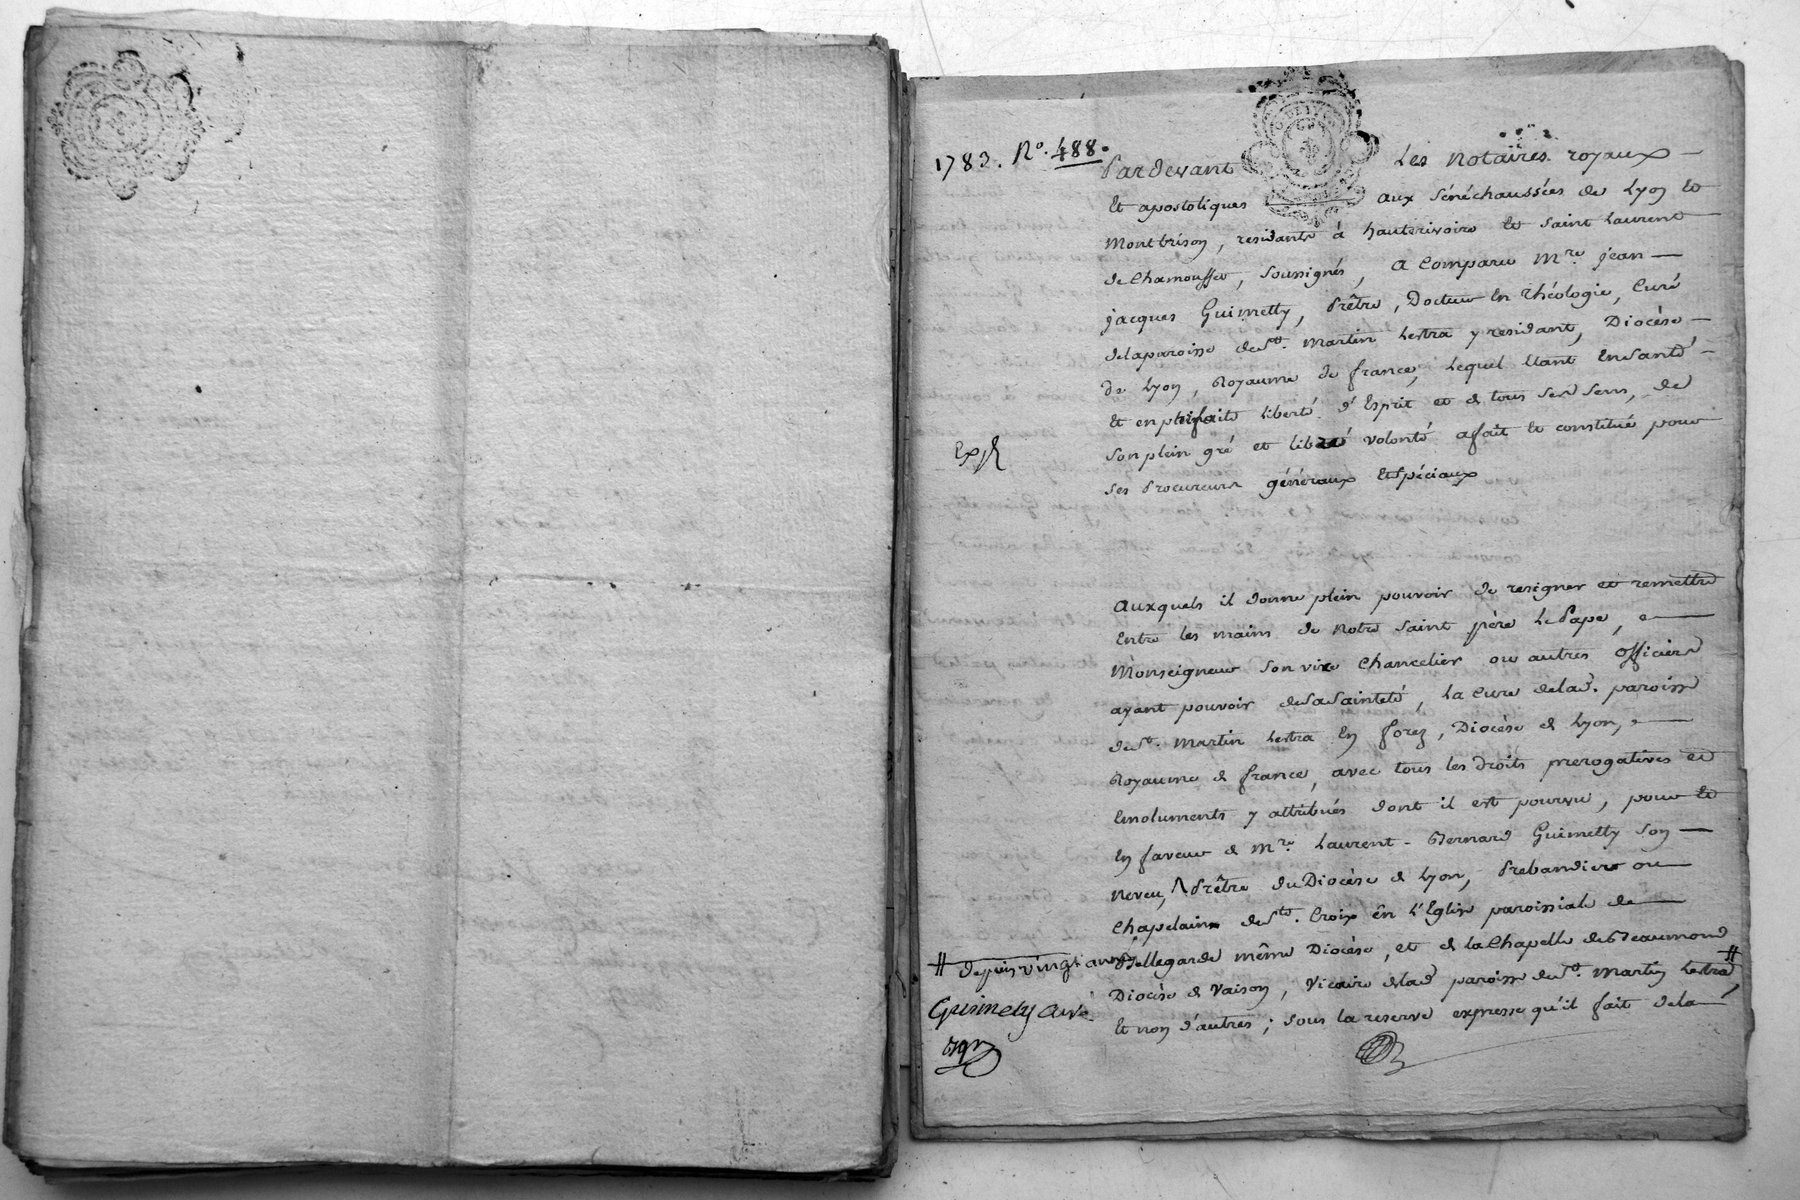 1783. N.o 488.
Pardevant Les Notaires royaux
Et apostoliques aux Sénéchaussées de Lyon Et
Montbrison, residants à hauterivoire Et Saint Laurent
de Chamousset, Soussignés, a Comparu M.re jean
jacques Guimetty, Prêtre, Docteur En Théologie, Curé
delaparoisse deSt. Martin Lestra y residant, Diocèse
de Lyon, Royaume de france, Lequel Etant EnSanté
Et en parfaite Liberté d'Esprit et de tous Ses Sens, de
Son plein gré et libre volonté afait Et constitué pour
Exp.
Ses Procureurs généraux EtSpéciaux
Auxquels il donne plein pouvoir de resigner et remettre
Entre les mains de Notre Saint père LePape,
Monseigneur Son vice Chancelier ou autres officiers
ayant pouvoir deSaSainteté, La Cure delad. paroisse
deSt. Martin Lestra En forez, Diocèse de Lyon,
Royaume de france, avec tous les droits prerogatives et
Emoluments y attribués dont il est pourvu, pour Et
En faveur de M.re Laurent-Bernard Guimetty Son
Neveu, Prêtre du Diocèse de Lyon, Prebandier ou
Chapelain deSte. Croix en L'Eglise paroissiale de
Bellegarde même Diocèse, et de la Chapelle deBeaumond
# depuis vingt ans
Diocèse de Vaison, Vicaire delad. paroisse deSt. Martin Lestra #
Guimety Curé
Et non d'autres; Sous la reserve expresse qu'il fait dela